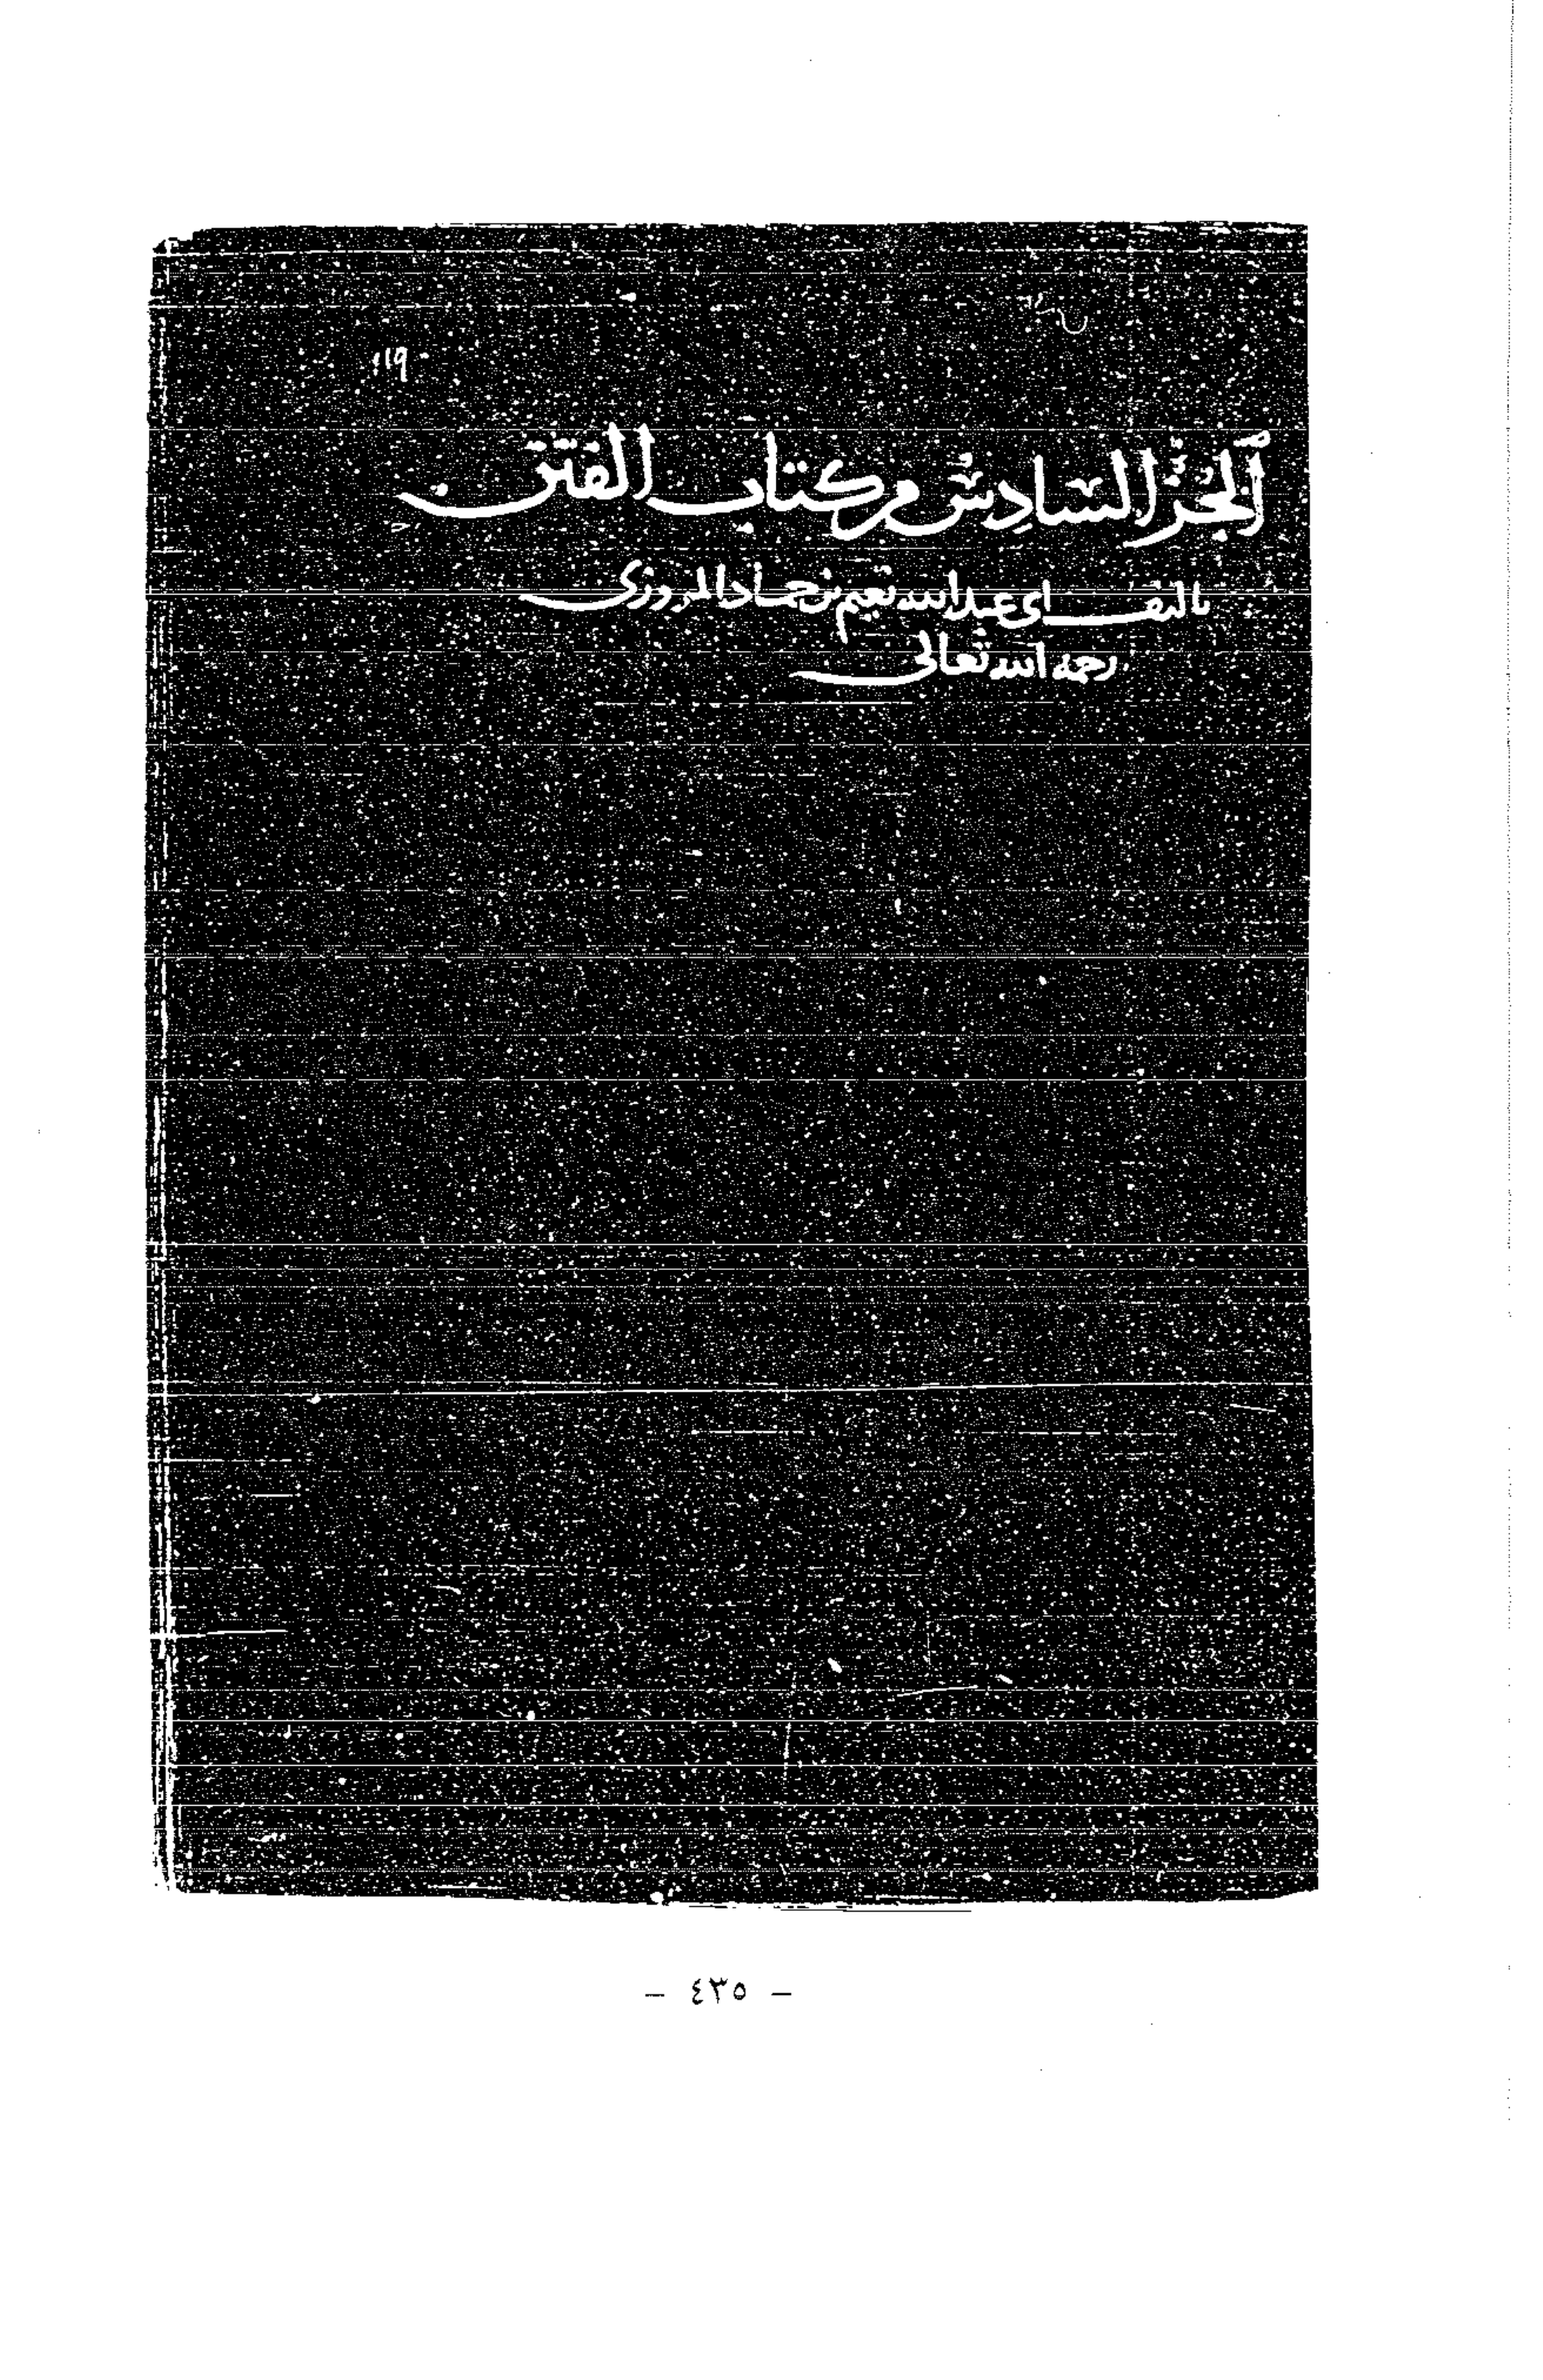 ١١٩
الجزء السادس من كتاب الفتن
تاليف ابى عبد الله نعيم بن حماد المروزى
رحمه الله تعالى
- ٤٣٥ -